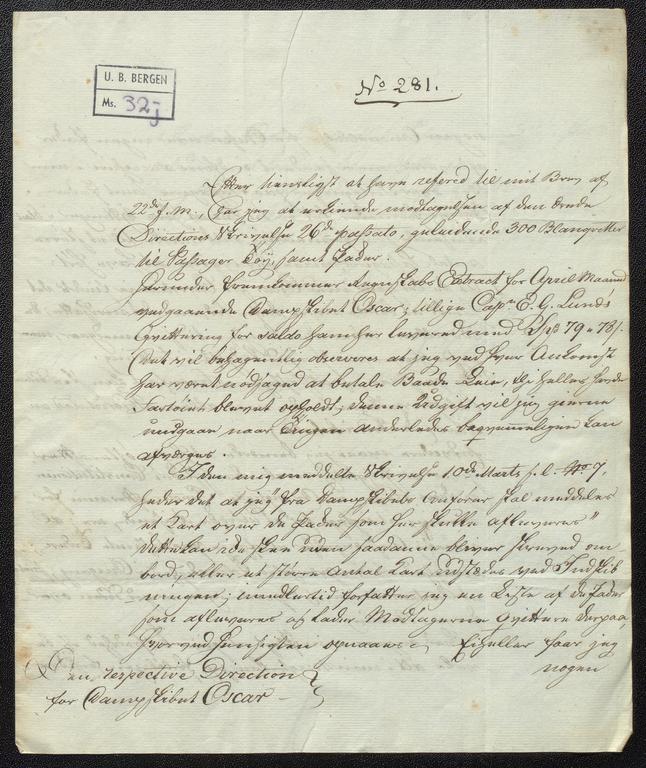 U. B. BERGEN
Ms. 32j
No 281.
Efter tienstligst at have refered til mit Brev af
22de f. M., har jeg at erkiende modtagelsen af den ærede
Directions Skrivelse 26de passato, geleidende 300 Blanqvetter
til Passager Tøy, samt Fader.
Herunder fremkommer Regnskabs Extract for April Maaned
vedgaaende Dampskibet Oscar; tillige Capn E. G. Lunds
Qvittering for Saldo ham her levered med Spd 79 " 78 /.
Det vil behagentlig observeres at jeg ved hver Ankomst
har været nødsaged at betale Baade Leie, thi hellers havde
Fartøiet blevet opholdt; denne Udgift vil jeg gierne
undgaae naar Tingen anderledes beqvemmeligen kan
afværges.
I den mig meddelte Skrivelse 10de Marts f. l. No 7,
heder det at jeg "fra Dampskibets Anfører skal meddeles
et Kart over de Fader som her skulle afleveres"
dette kan ide skee uden saadanne bliver skreved om-
bord, eller et større Antal Kart udstædes ved Indskib
ningen; imidlertid forfatter jeg en Liste af de Fader
som afleveres og lader Modtagerne qvittere derpaa,
hvorved hensigten opnaaes. Ei heller faar jeg
nogen
Den respective Direction
for Dampskibet Oscar